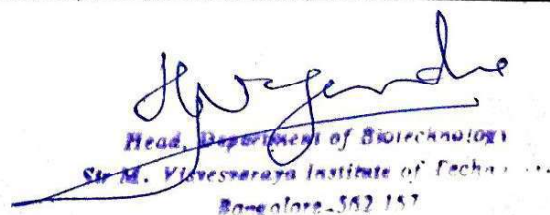 HNagendra
Head, Department of Biotechnology
Sir M. Visvesvaraya Institute of Techn
Bangalore-562 157